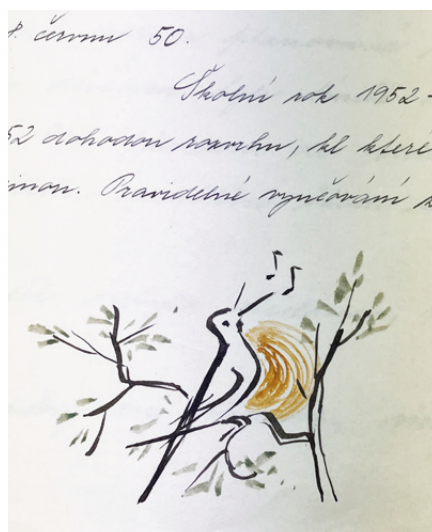 červnu 50.
Školní rok 1952 -
52 dohodou rozvrhu, kl které
Pravidelné vyučování